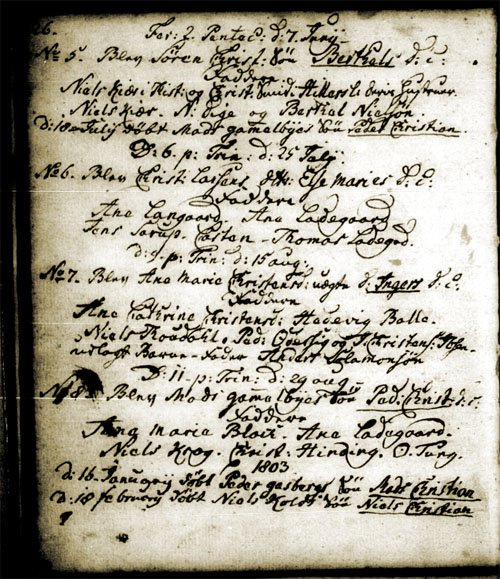 26.
Fer: 2. Pentec: d: 7. Junij.
No 5. Blev Sören Christ: Sön Berthels d: c:
Faddere
Niels Kiær i Hist: og Christ: Smid: Hillers le deres Hustruer.
Niels Kiær. N: Eige og Berthel Nielsön.
d: 18 Julij döbt Mads gamelbyes Sön Peder Christian.
D: 6. p: Trin: d: 25 July.
No 6. Blev Christ: Lassens dtr: Else Maries d: c:
Faddere
Ana Langaard. Ana Ladegaard
Jens Sörup. Casten - Thomas Ladegrd.
d: 9. p: Trin: d: 15 aug:
No 7. Blev Ane Marie Christensd: uægte d: Ingers d: c:
Faddere
Ane Cathrine Christensd: Hedevig Balle.
Niels Ped: og J: Christens:
udlagt Barne-Fader Anders Salamonsön
D: 11. p: Trin: d: 29 aug
No 8. Blev Mads gamelbyes Sön Ped: Christ: d: c:
Faddere
Ana Maria Ana Ladegaard.
Niels Krog. Christ: Hinding. O: Tung.
1803
d: 16 Januarij döbt Peder gasbergs Sön Mads Christian
d: 18 februarij döbt Niels Holdts Sön Niels Christian